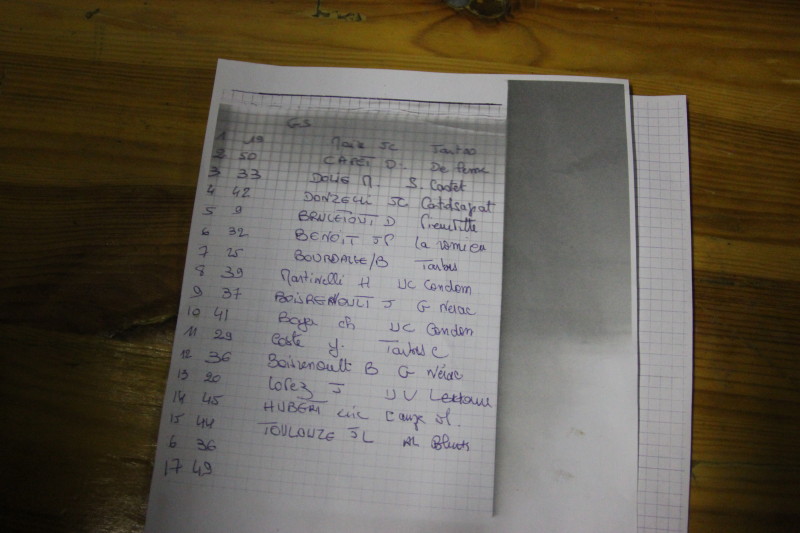 G3
1 19 Marie JC Tarbes
2 50 CAPET D.
3 33 DOUE M. S. Castet
4 42 DONZELLI JC
5 9 D
6 32 BENOIT JP la romieu
7 25 BOURDALLE/B Tarbes
8 39 Martinelli H UC Condom
9 37 BOISRENOULT J G Nérac
10 41 Boya ch UC Condom
11 29 Coste y. Tarbes C
12 36 Boisrenoult B G Nérac
13 20 Lopez J UV Lectoure
14 45 HUBERT
15 44 TOULOUZE JL AL
6 36
17 49